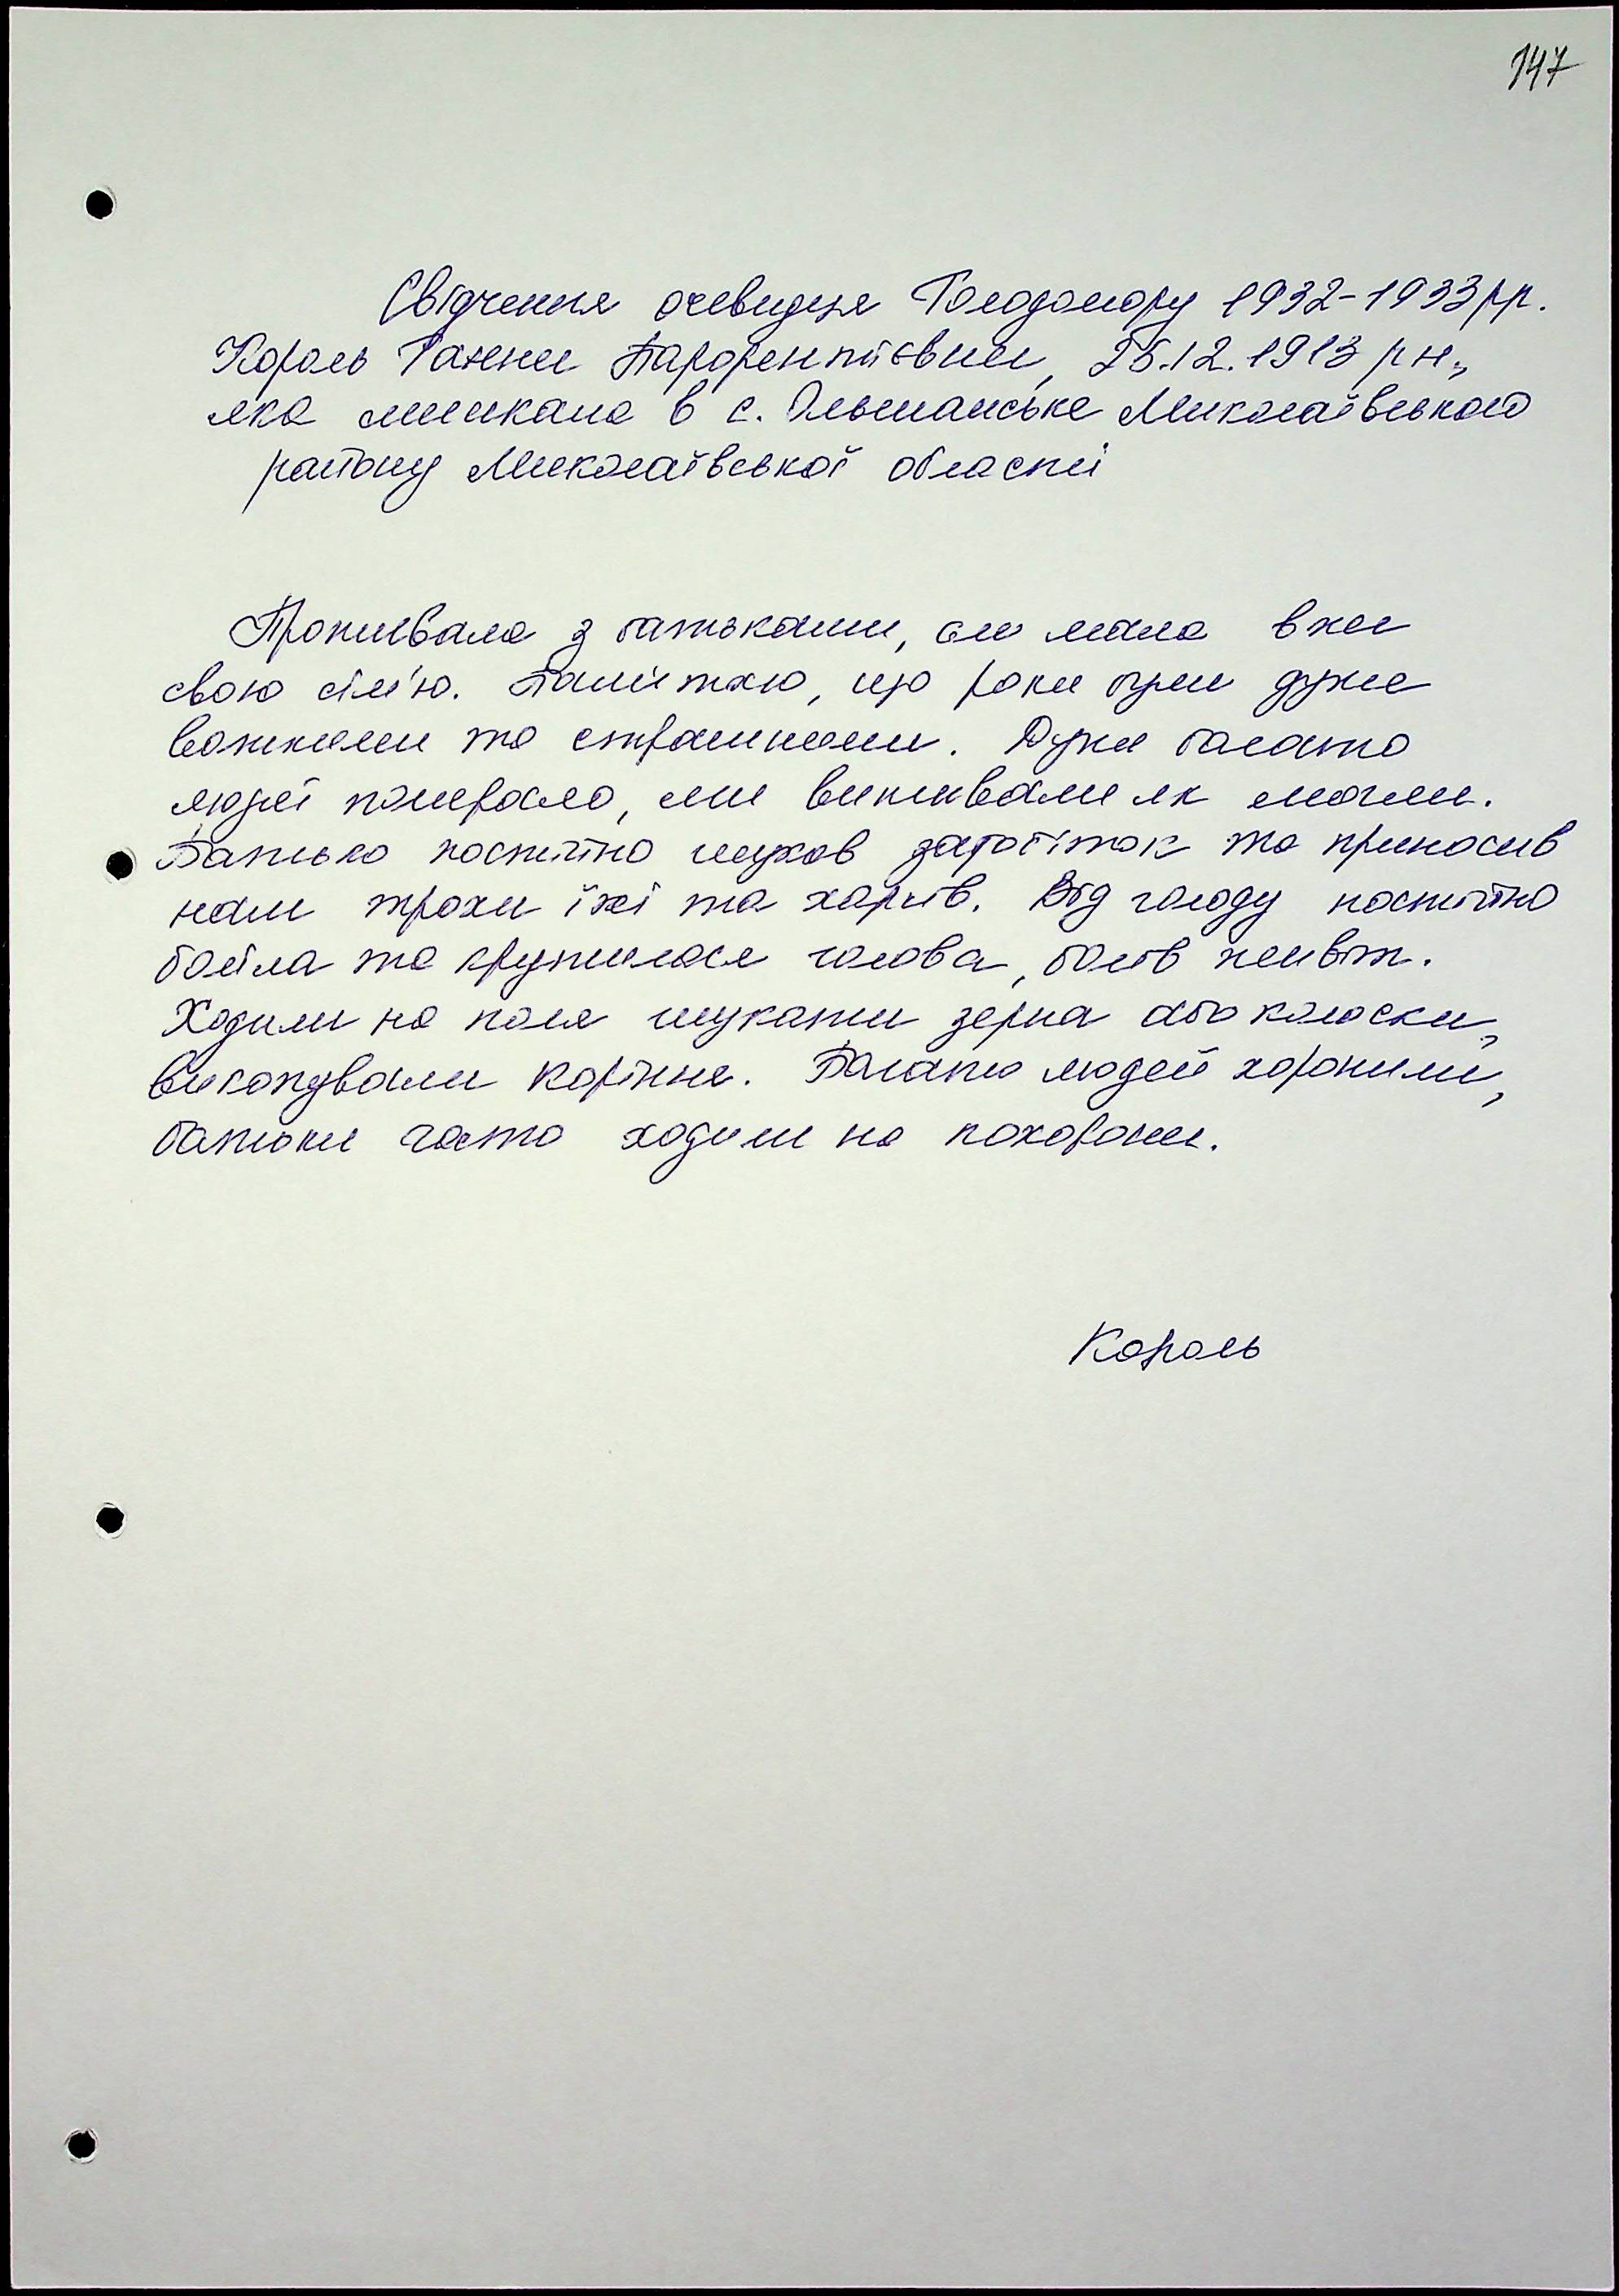 147
Свідчення очевидця Голодомору 1932-1933 рр.
Король Ганни Парфентіївни, 25.12.1913 р.н.,
яка мешкала в с. Ольшанське Миколаївського
району Миколаївської області
Проживала з батьками, але мала вже
свою сім'ю. Пам'ятаю, що роки були дуже
важкими та страшними. Дуже багато
людей померало, ми виживали як могли.
Батько постійно шукав заробіток та приносив
нам трохи їжі та харчів. Від голоду постійно
боліла та кружилася голова, болів живіт.
Ходили на поля шукати зерна або колоски,
викопували коріння. Багато людей хоронили,
батьки часто ходили на похорони.
Король